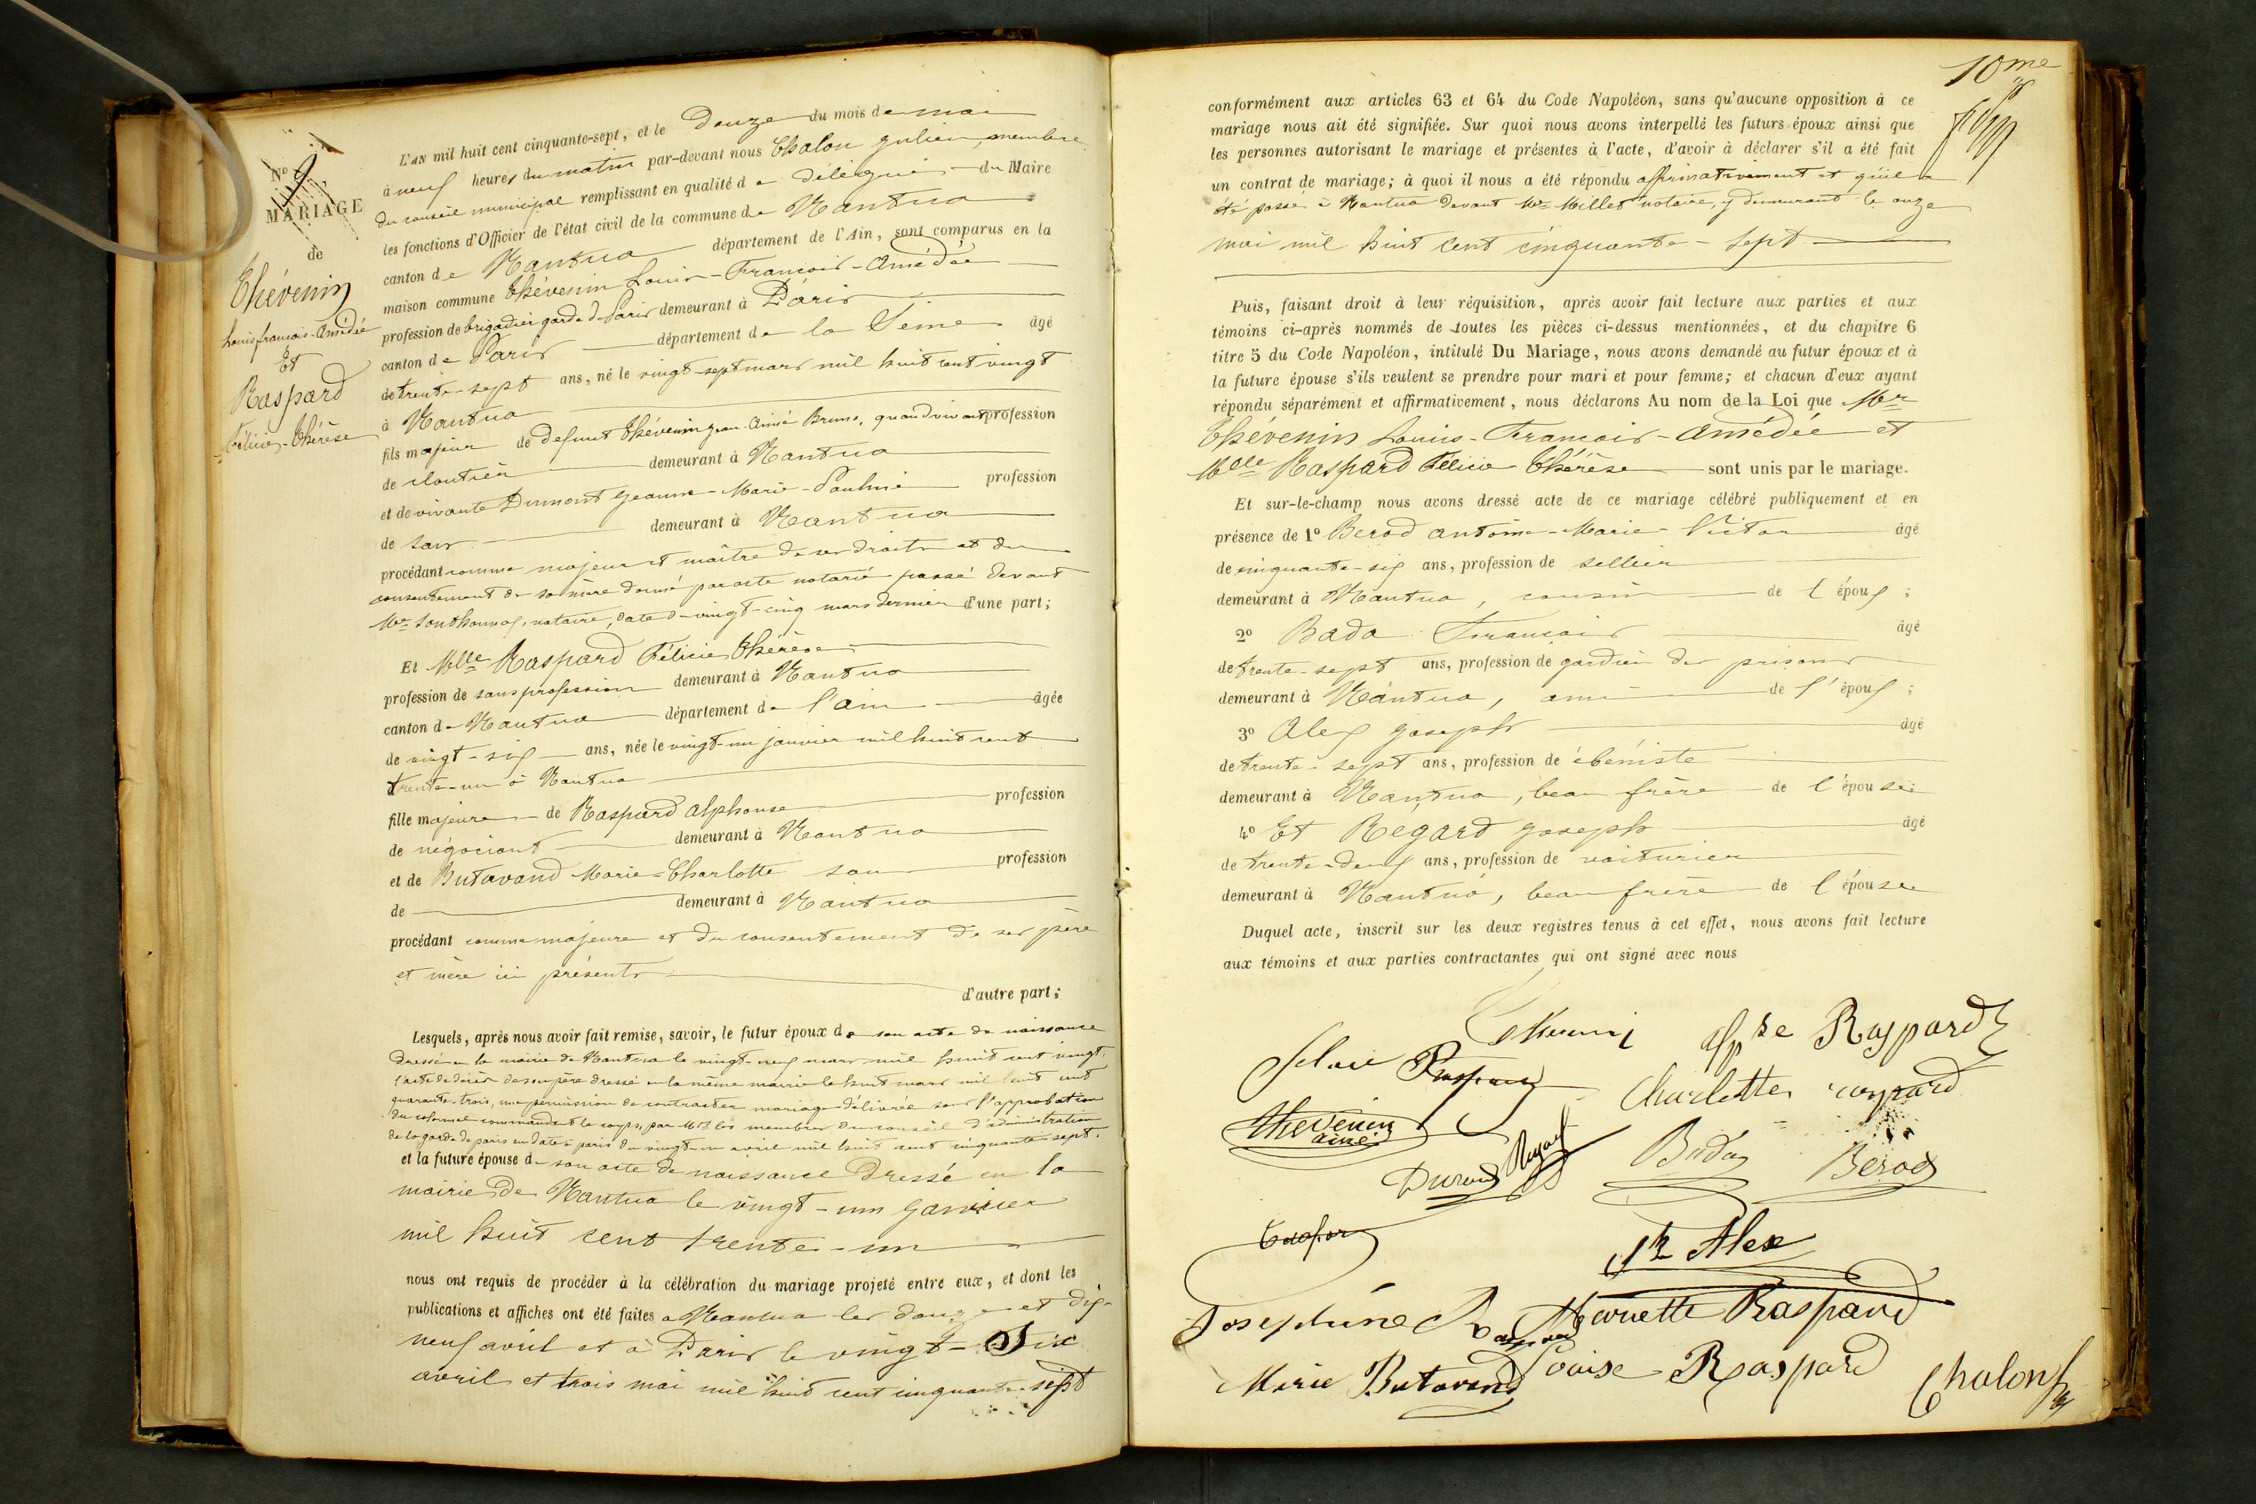 N° 9
MARIAGE
de
Thévenin
Louis françois-Amédée
Et
Raspard
Félicie-Thérèse
L'AN mil huit cent cinquante-sept, et le Douze du mois de mai
à neuf heures du matin par-devant nous Chalon Julien, membre
du conseil municipal remplissant en qualité de délégué du Maire
les fonctions d'Officier de l'état civil de la commune de Nantua
canton de Nantua département de l'Ain, sont comparus en la
maison commune Thévenin Louis-François-Amédée
profession de brigadier garde de Paris demeurant à Paris
canton de Paris département de la Seine âgé
de trente-sept ans, né le vingt-sept mars mil huit cent vingt
à Nantua
fils majeur de défunt Thévenin Jean-Aimé Bruno, quand vivant profession
de cloutier demeurant à Nantua
et de vivante Dumont Jeanne-Marie-Pauline profession
de sans demeurant à Nantua
procédant comme majeur et maître de ses droits et du
consentement de sa mère donné par acte notarié passé devant
Mtre Southonnax, notaire, date du vingt-cinq mars dernier d'une part;
Et Mlle Raspard Félicie Thérèse
profession de sans profession demeurant à Nantua
canton de Nantua département de l'Ain âgée
de vingt-six ans, née le vingt-un janvier mil huit cent
trente-un à Nantua
fille majeure de Raspard Alphonse profession
de négociant demeurant à Nantua
et de Butavand Marie-Charlotte sans profession
de demeurant à Nantua
procédant comme majeure et du consentement de ses père
et mère ici présents
d'autre part;
Lesquels, après nous avoir fait remise, savoir, le futur époux de son acte de naissance
dressé en la mairie de Nantua le vingt-neuf mars mil huit cent vingt,
l'acte de décès de son père dressé en la même mairie le huit mars mil huit cent
quarante-trois, une permission de contracter mariage délivrée sous l'approbation
du colonel commandant le corps, par MM les membres du conseil d'administration
de la garde de paris en date à paris du vingt-un avril mil huit cent cinquante-sept.
et la future épouse de son acte de naissance dressé en la
mairie de Nantua le vingt-un janvier
mil huit cent trente-un
nous ont requis de procéder à la célébration du mariage projeté entre eux, et dont les
publications et affiches ont été faites à Nantua les douze et dix-
neuf avril et à Paris le vingt-six
avril et trois mai mil huit cent cinquante-sept
10me
conformément aux articles 63 et 64 du Code Napoléon, sans qu'aucune opposition à ce
mariage nous ait été signifiée. Sur quoi nous avons interpellé les futurs époux ainsi que
les personnes autorisant le mariage et présentes à l'acte, d'avoir à déclarer s'il a été fait
un contrat de mariage; à quoi il nous a été répondu affirmativement et qu'il a
été passé à Nantua devant Mtre Millet notaire, y demeurant le onze
mai mil huit cent cinquante-sept
Puis, faisant droit à leur réquisition, après avoir fait lecture aux parties et aux
témoins ci-après nommés de toutes les pièces ci-dessus mentionnées, et du chapitre 6
titre 5 du Code Napoléon, intitulé Du Mariage, nous avons demandé au futur époux et à
la future épouse s'ils veulent se prendre pour mari et pour femme; et chacun d'eux ayant
répondu séparément et affirmativement, nous déclarons Au nom de la Loi que Mr
Thévenin Louis-François-Amédée et
Melle Raspard Félicie Thérèse sont unis par le mariage.
Et sur-le-champ nous avons dressé acte de ce mariage célébré publiquement et en
présence de 1° Berod antoine-Marie-Victor âgé
de cinquante-six ans, profession de sellier
demeurant à Nantua, cousin de l'époux;
2° Bada François âgé
de trente-sept ans, profession de gardien des prisons
demeurant à Nantua, ami de l'époux;
3° Alex Joseph âgé
de trente-sept ans, profession de ébéniste
demeurant à Nantua, beau frère de l'épouse
4° Et Regard Joseph âgé
de trente-deux ans, profession de voiturier
demeurant à Nantua, beau frère de l'épouse
Duquel acte, inscrit sur les deux registres tenus à cet effet, nous avons fait lecture
aux témoins et aux parties contractantes qui ont signé avec nous
Thevenin Alphse Raspard
Félicie Raspard Charlotte raspard
Thevenin
ainé
Regard Bada Berod
Jh Alex
Josephine Raspard Mariette Raspard
Marie Butavand Louise Raspard Chalon